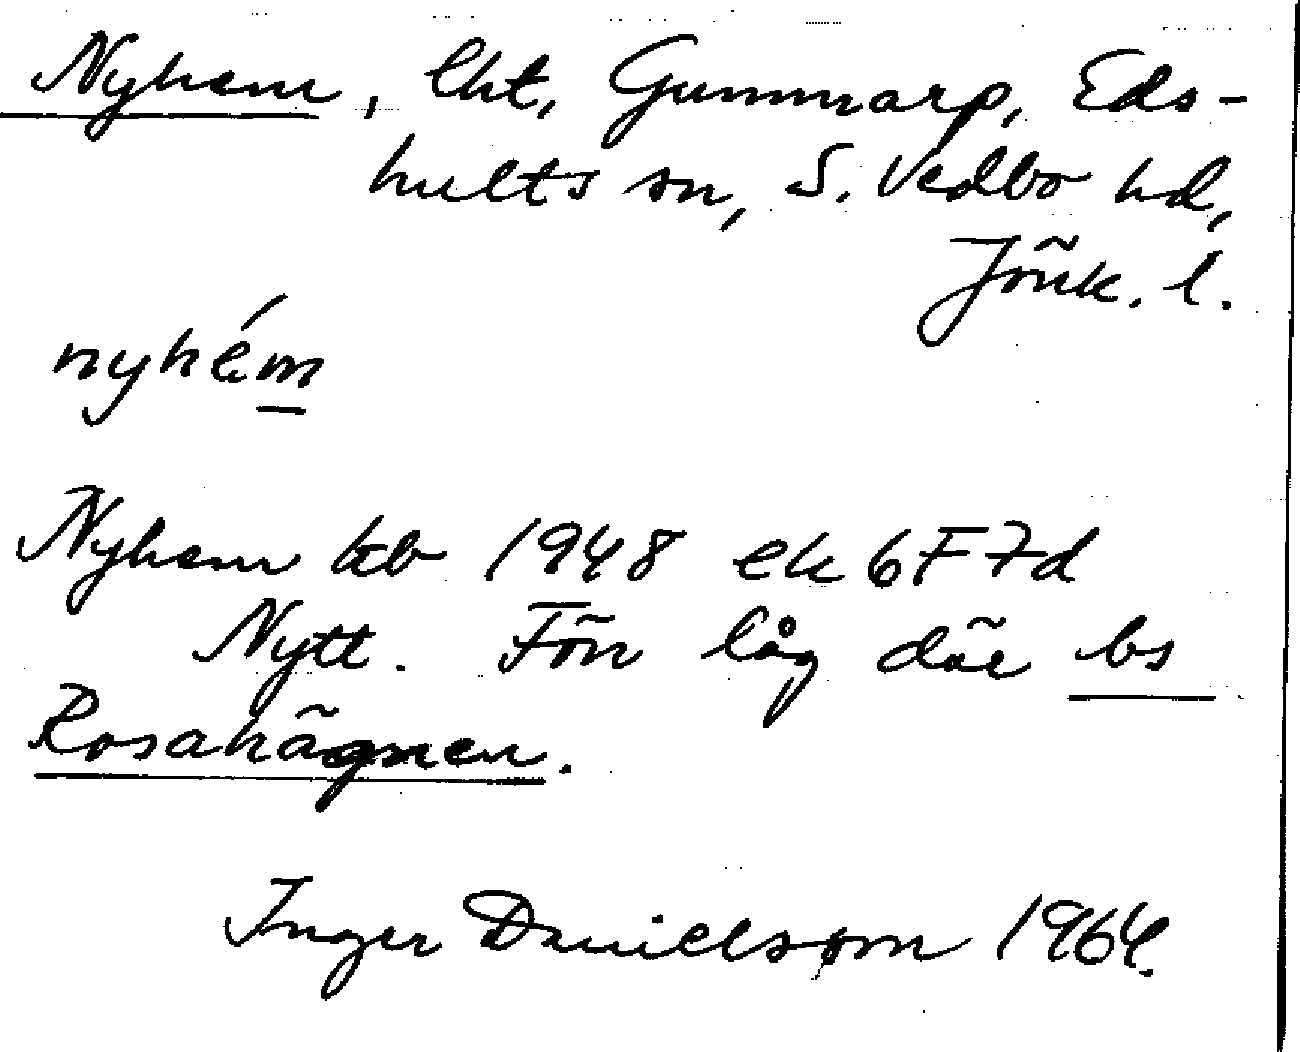 Nyhem, lht, Gummarp, Eds-
hults sn, S. Vedbo hd,
Jönk. l.
nyhém
Nyhem kb 1948 ek 6F7d
Nytt. Förr låg där bs
Rosahägnen.
Inger Danielsson 1964.